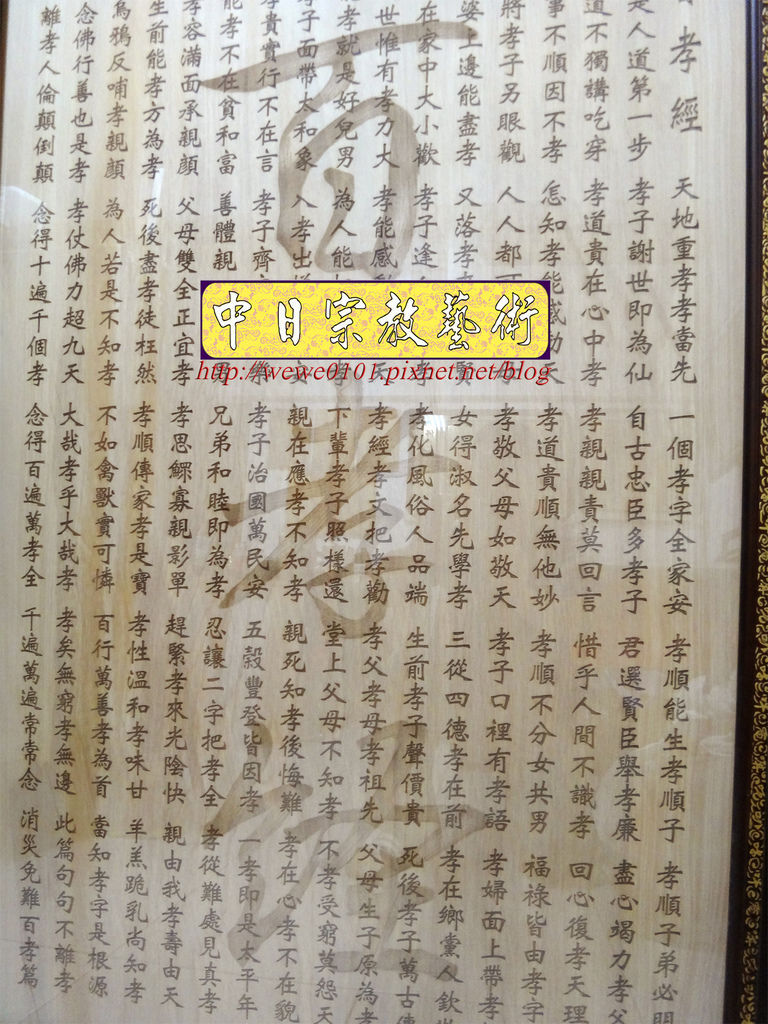 孝經 天地重孝孝當先 一個孝字全家安 孝順能生孝順子 孝順子弟必明
是人道第一步 孝子謝世即為仙 自古忠臣多孝子 君選賢臣舉孝廉 盡心竭力孝父
道不獨講吃穿 孝道貴在心中孝 孝親親責莫回言 惜乎人間不識孝 回心復孝天理
事不順因不孝 怎知孝能感動天 孝道貴順無他妙 孝順不分女共男 福祿皆由孝字
將孝子另眼觀 人人都可 孝敬父母如敬天 孝子口裡有孝語 孝婦面上帶孝
婆上邊能盡孝 又落孝 賢 女得淑名先學孝 三從四德孝在前 孝在鄉黨人欽
在家中大小歡 孝子逢人 孝 孝化風俗人品端 生前孝子聲價貴 死後孝子萬古
世惟有孝力大 孝能感 天 孝經孝文把孝勸 孝父孝母孝祖先 父母生子原為孝
孝就是好兒男 為人能 下輩孝子照樣還 堂上父母不知孝 不孝受窮莫怨天
孝子面帶太和象 入孝出 親在應孝不知孝 親死知孝後悔難 孝在心孝不在貌
孝貴實行不在言 孝子齊 孝 孝子治國萬民安 五穀豐登皆因孝 一孝即是太平年
能孝不在貧和富 善體親 兄弟和睦即為孝 忍讓二字把孝全 孝從難處見真孝
孝容滿面承親顏 父母雙全正宜孝 孝思鰥寡親影單 趕緊孝來光陰快 親由我孝壽由天
生前能孝方為孝 死後盡孝徒枉然 孝順傳家孝是寶 孝性溫和孝味甘 羊羔跪乳尚知孝
烏鴉反哺孝親顏 為人若是不知孝 不如禽獸實可憐 百行萬善孝為首 當知孝字是根源
念佛行善也是孝 孝仗佛力超九天 大哉孝乎大哉孝 孝矣無窮孝無邊 此篇句句不離孝
離孝人倫顛倒顛 念得十遍千個孝 念得百遍萬孝全 千遍萬遍常常念 消災免難百孝篇
百孝經
中日宗教藝術
http://wewe0101.pixnet.net/blog